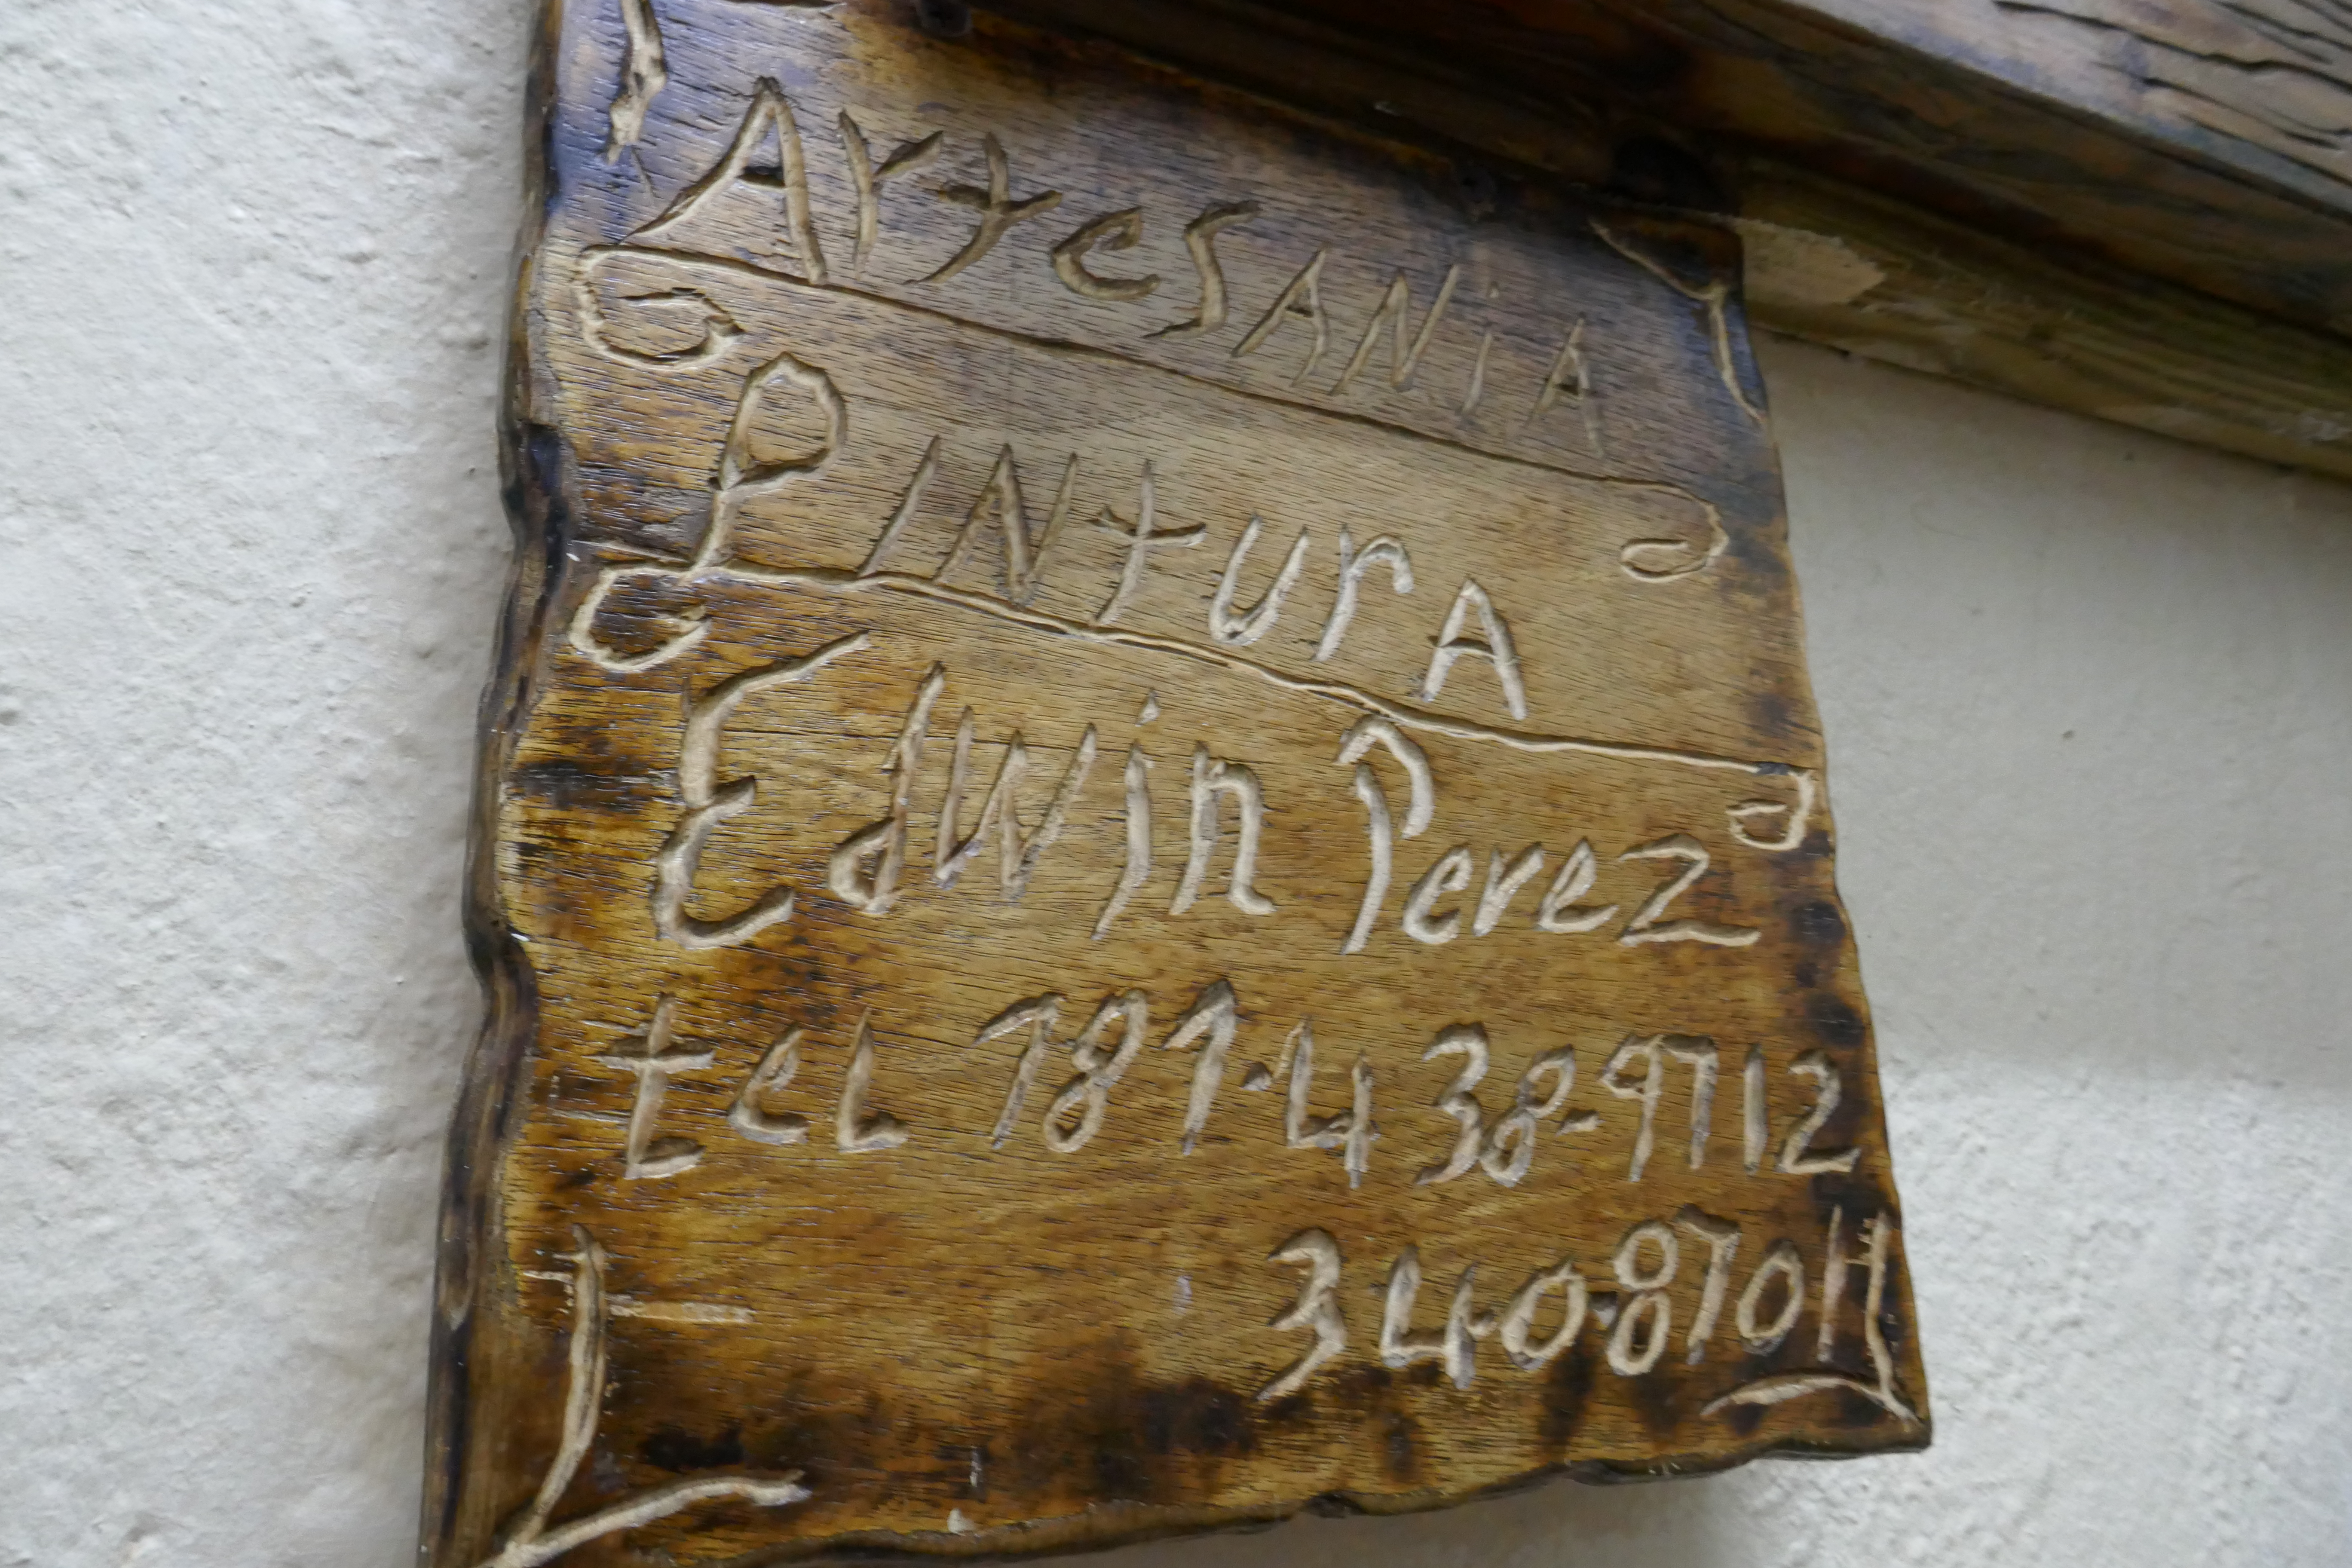 Artesania
Pintura
Edwin Perez
tel 787-438-9712
340-8701